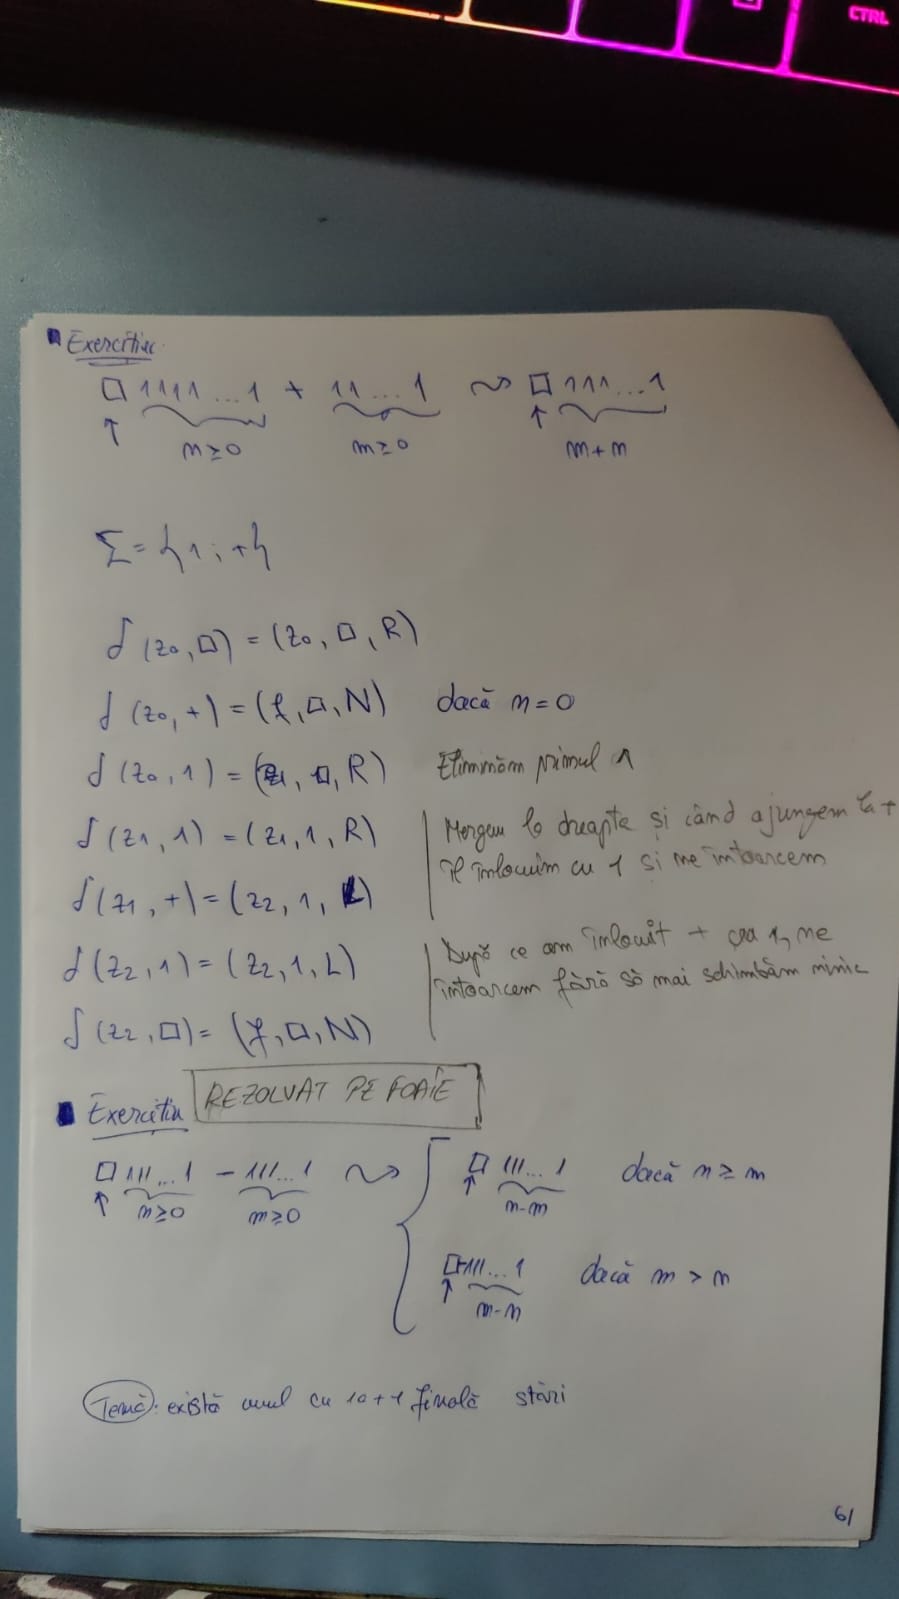 CTRL
Exercițiu
□ 1111...1 + 11...1 ⤳ □ 111...1
↑ n≥0 m≥0 ↑ m+n
Σ = {1; +}
δ(z₀, □) = (z₀, □, R)
δ(z₀, +) = (f, □, N) dacă n=0
δ(z₀, 1) = (z₁, □, R) Eliminăm primul 1
δ(z₁, 1) = (z₁, 1, R) Mergem la dreapta și când ajungem la +
δ(z₁, +) = (z₂, 1, L) îl înlocuim cu 1 și ne întoarcem
δ(z₂, 1) = (z₂, 1, L) După ce am înlocuit + cu 1, ne
întoarcem fără să mai schimbăm nimic
δ(z₂, □) = (f, □, N)
Exercițiu REZOLVAT PE FOAIE
□ 111...1 - 111...1 ⤳ { □ 111...1 dacă n ≥ m
↑ n≥0 m≥0 ↑ n-m
□-111...1 dacă m > n
↑ m-n
Temă: există unul cu 10+1 finală stări
61